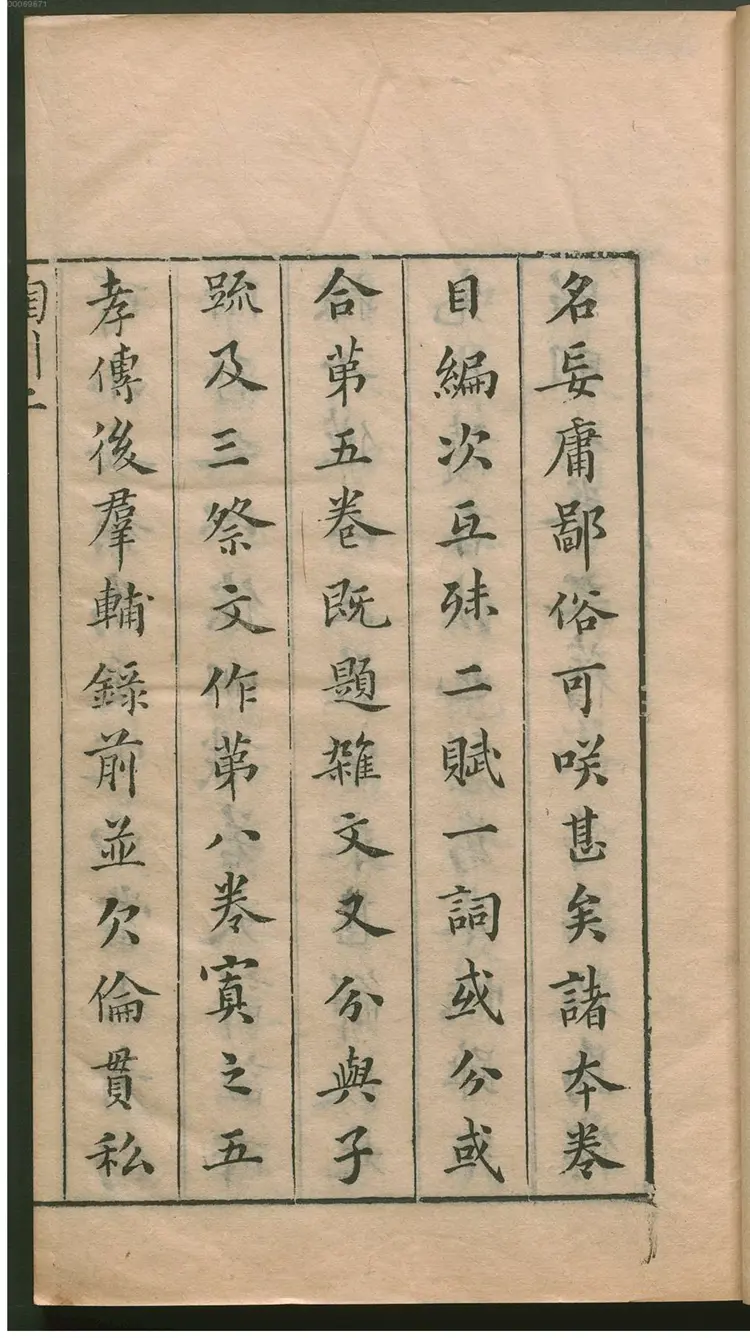 00069871
名妄庸鄙俗可咲甚矣諸本卷
目編次互殊二賦一詞或分或
合第五卷既題雜文又分與子
疏及三祭文作第八卷寘之五
孝傳後羣輔錄前並欠倫貫私